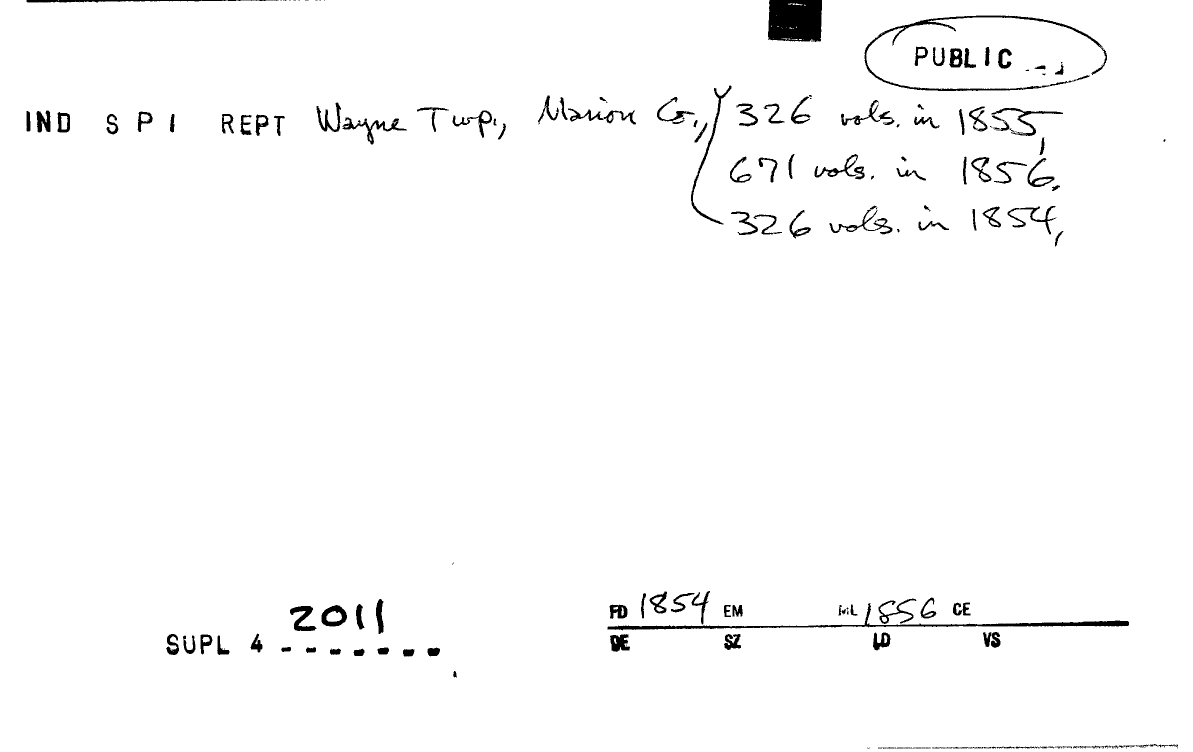 PUBLIC
IND S P I REPT Wayne Twp., Marion Co., 326 vols. in 1855,
671 vols. in 1856.
326 vols. in 1854,
2011
SUPL 4 - - - - - - -
FD 1854 EM ML 1856 CE
DE SZ LD VS